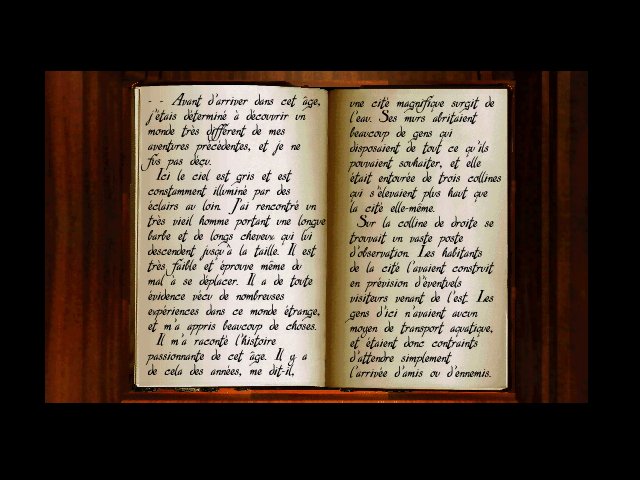 - - Avant d'arriver dans cet âge,
j'étais déterminé à découvrir un
monde très différent de mes
aventures précédentes, et je ne
fus pas déçu.
Ici le ciel est gris et est
constamment illuminé par des
éclairs au loin. J'ai rencontré un
très vieil homme portant une longue
barbe et de longs cheveux qui lui
descendent jusqu'à la taille. Il est
très faible et éprouve même du
mal à se déplacer. Il a de toute
évidence vécu de nombreuses
expériences dans ce monde étrange,
et m'a appris beaucoup de choses.
Il m'a raconté l'histoire
passionnante de cet âge. Il y a
de cela des années, me dit-il,
une cité magnifique surgit de
l'eau. Ses murs abritaient
beaucoup de gens qui
disposaient de tout ce qu'ils
pouvaient souhaiter, et elle
était entourée de trois collines
qui s'élevaient plus haut que
la cité elle-même.
Sur la colline de droite se
trouvait un vaste poste
d'observation. Les habitants
de la cité l'avaient construit
en prévision d'éventuels
visiteurs venant de l'est. Les
gens d'ici n'avaient aucun
moyen de transport aquatique,
et étaient donc contraints
d'attendre simplement
l'arrivée d'amis ou d'ennemis.